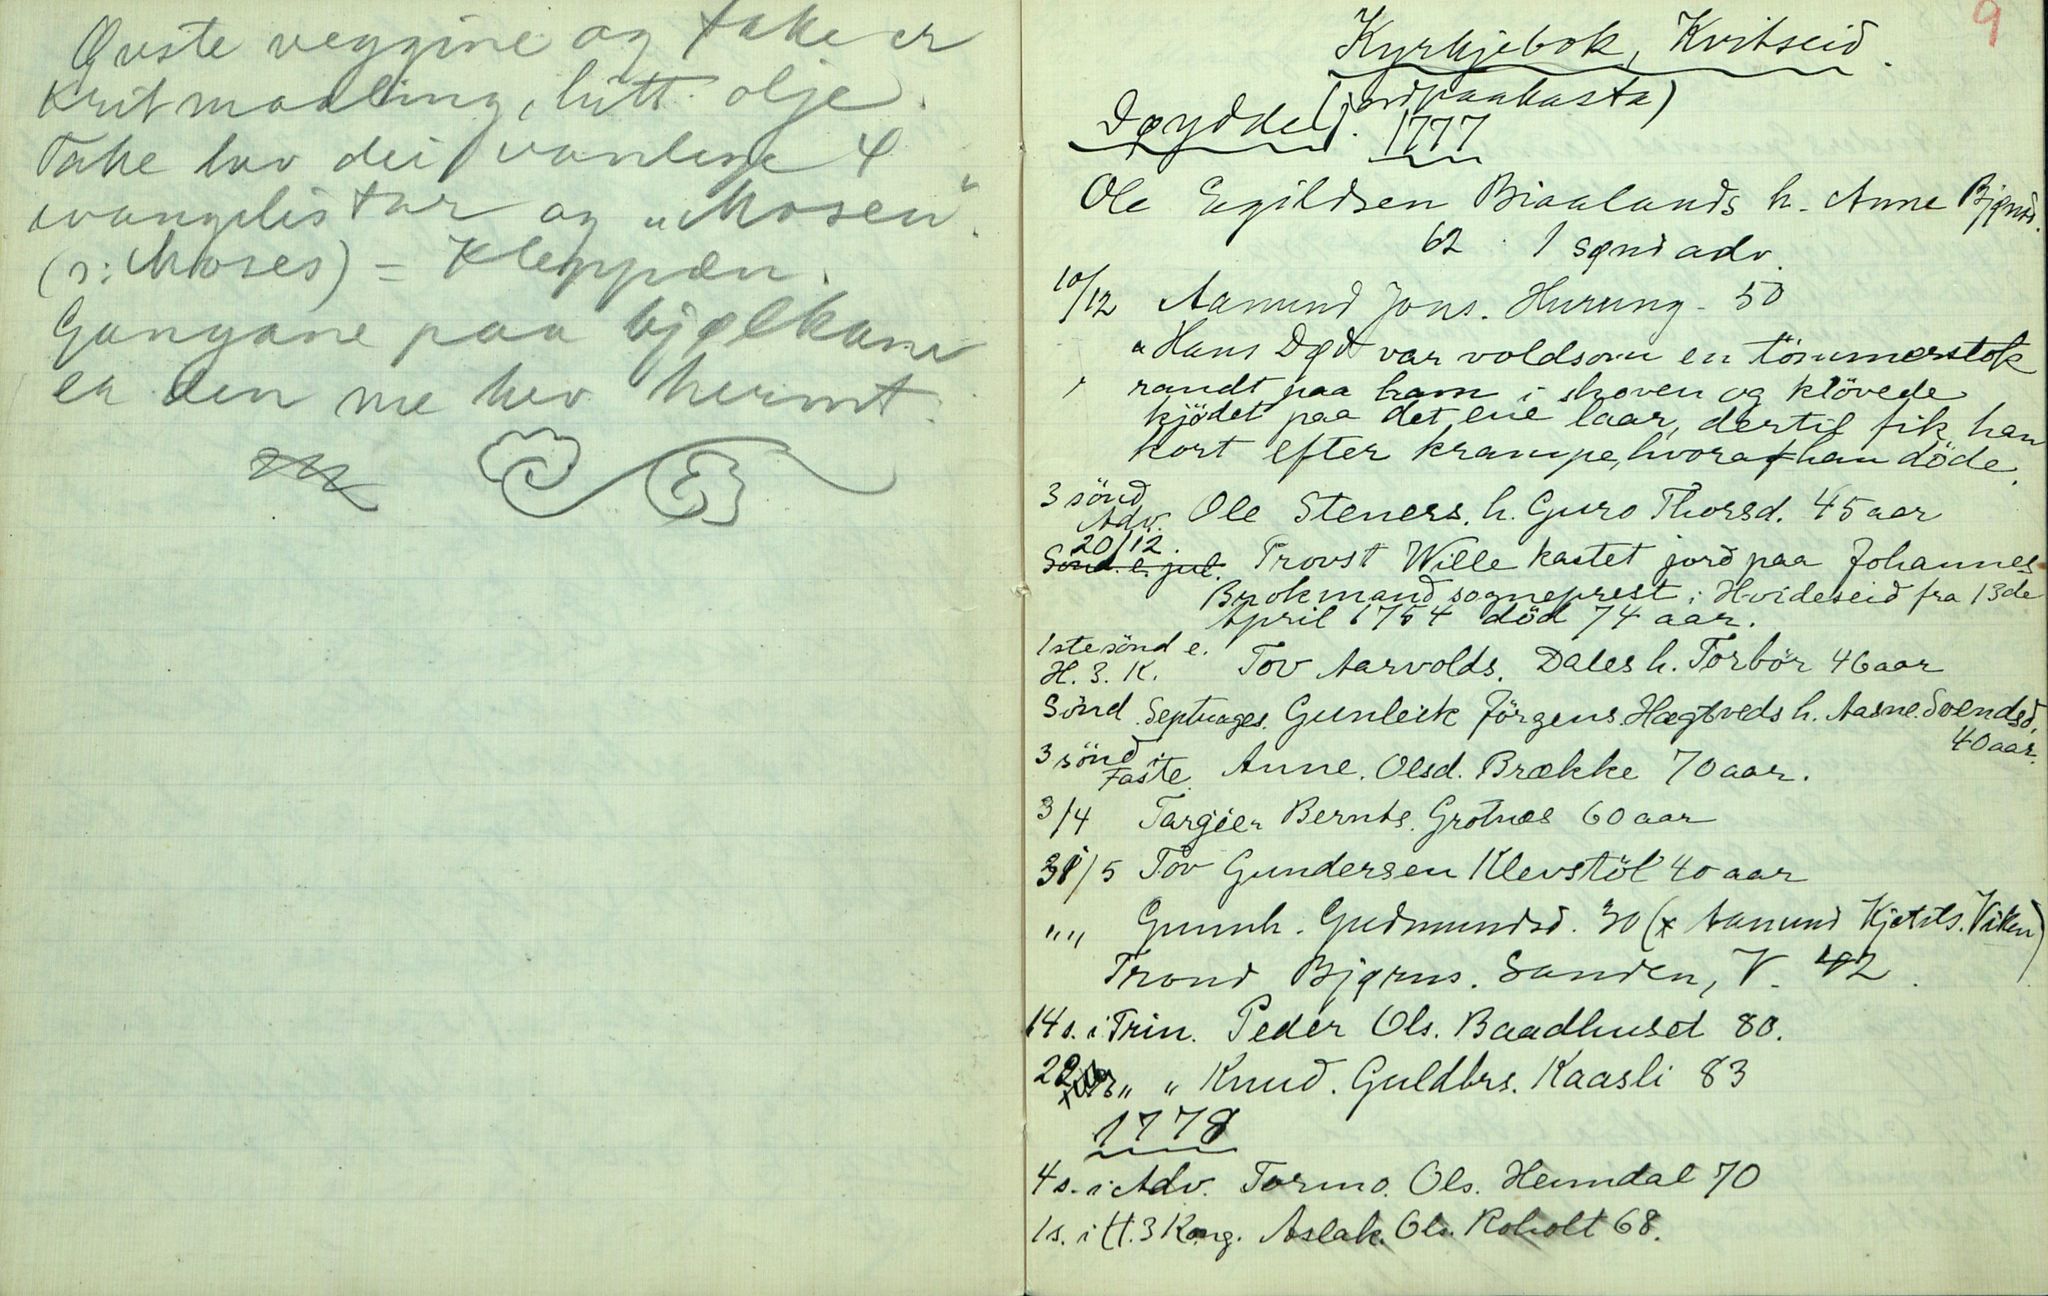 Øvste veggine og take er
Kritmaaling, litt olje.
Take hev dei vanlege 4
evangelistar og „Mosen“.
(ɔ: Moses) = Kleppen.
Gangane paa bjølkane
er den me hev hermt.
9
Kyrkjebok, Kvitseid.
(jordpaakasta)
Døydde 1777
Ole Egildsen Biaalands h. Anne Bjønsd.
62 1 sønd adv.
10/12 Aamund Jons. Hurung - 50
„Hans Død var voldsom en tömmerstok
randt paa ham i skoven og klövede
kjödet paa det ene laar, dertil fik han
kort efter krampe, hvoraf han döde.
3 sönd
Adv. Ole Steners. h. Guro Thorsd. 45 aar
20/12.
Sönd. e. jul. Provst Wille kastet jord paa Johannes
Brokmand sogneprest i Hvideseid fra 13de
April 1754 död 74 aar.
1ste sönd e.
H. 3. K. Tov Aarvolds. Dales h. Torbör 46 aar
Sönd. Septuages. Gunleik Jörgens. Hægtveds h. Aasne Svendsd.
40 aar.
3 sönd i
Faste Anne. Olsd. Brække 70 aar.
3/4 Targier Bernts. Grotnes 60 aar
31/5 Tov Gundersen Klevstöl 40 aar
„„ Gunnh. Gudmundsd. 30 (x Aamund Kjetils. Viken)
Trond Bjørns. Sanden, V. 42.
14 s. i Trin. Peder Ols. Baadhuset 80.
22 „ „ Knud. Guldbrs. Kaasli 83
1778
4 s. i Adv. Tormo. Ols. Hemdal 70
1 s. i H. 3 Kong. Aslak. Ols. Roholt 68.